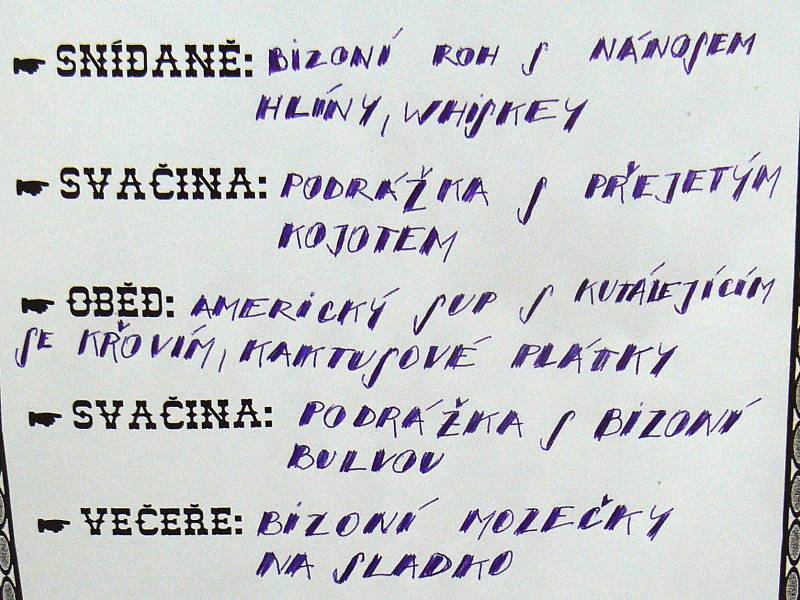 SNÍDANĚ: BIZONÍ ROH S NÁNOSEM
HLÍNY, WHISKEY
SVAČINA: PODRÁŽKA S PŘEJETÝM
KOJOTEM
OBĚD: AMERICKÝ SUP S KUTÁLEJÍCÍM
SE KŘOVÍM, KAKTUSOVÉ PLÁTKY
SVAČINA: PODRÁŽKA S BIZONÍ
BULVOU
VEČEŘE: BIZONÍ MOZEČKY
NA SLADKO